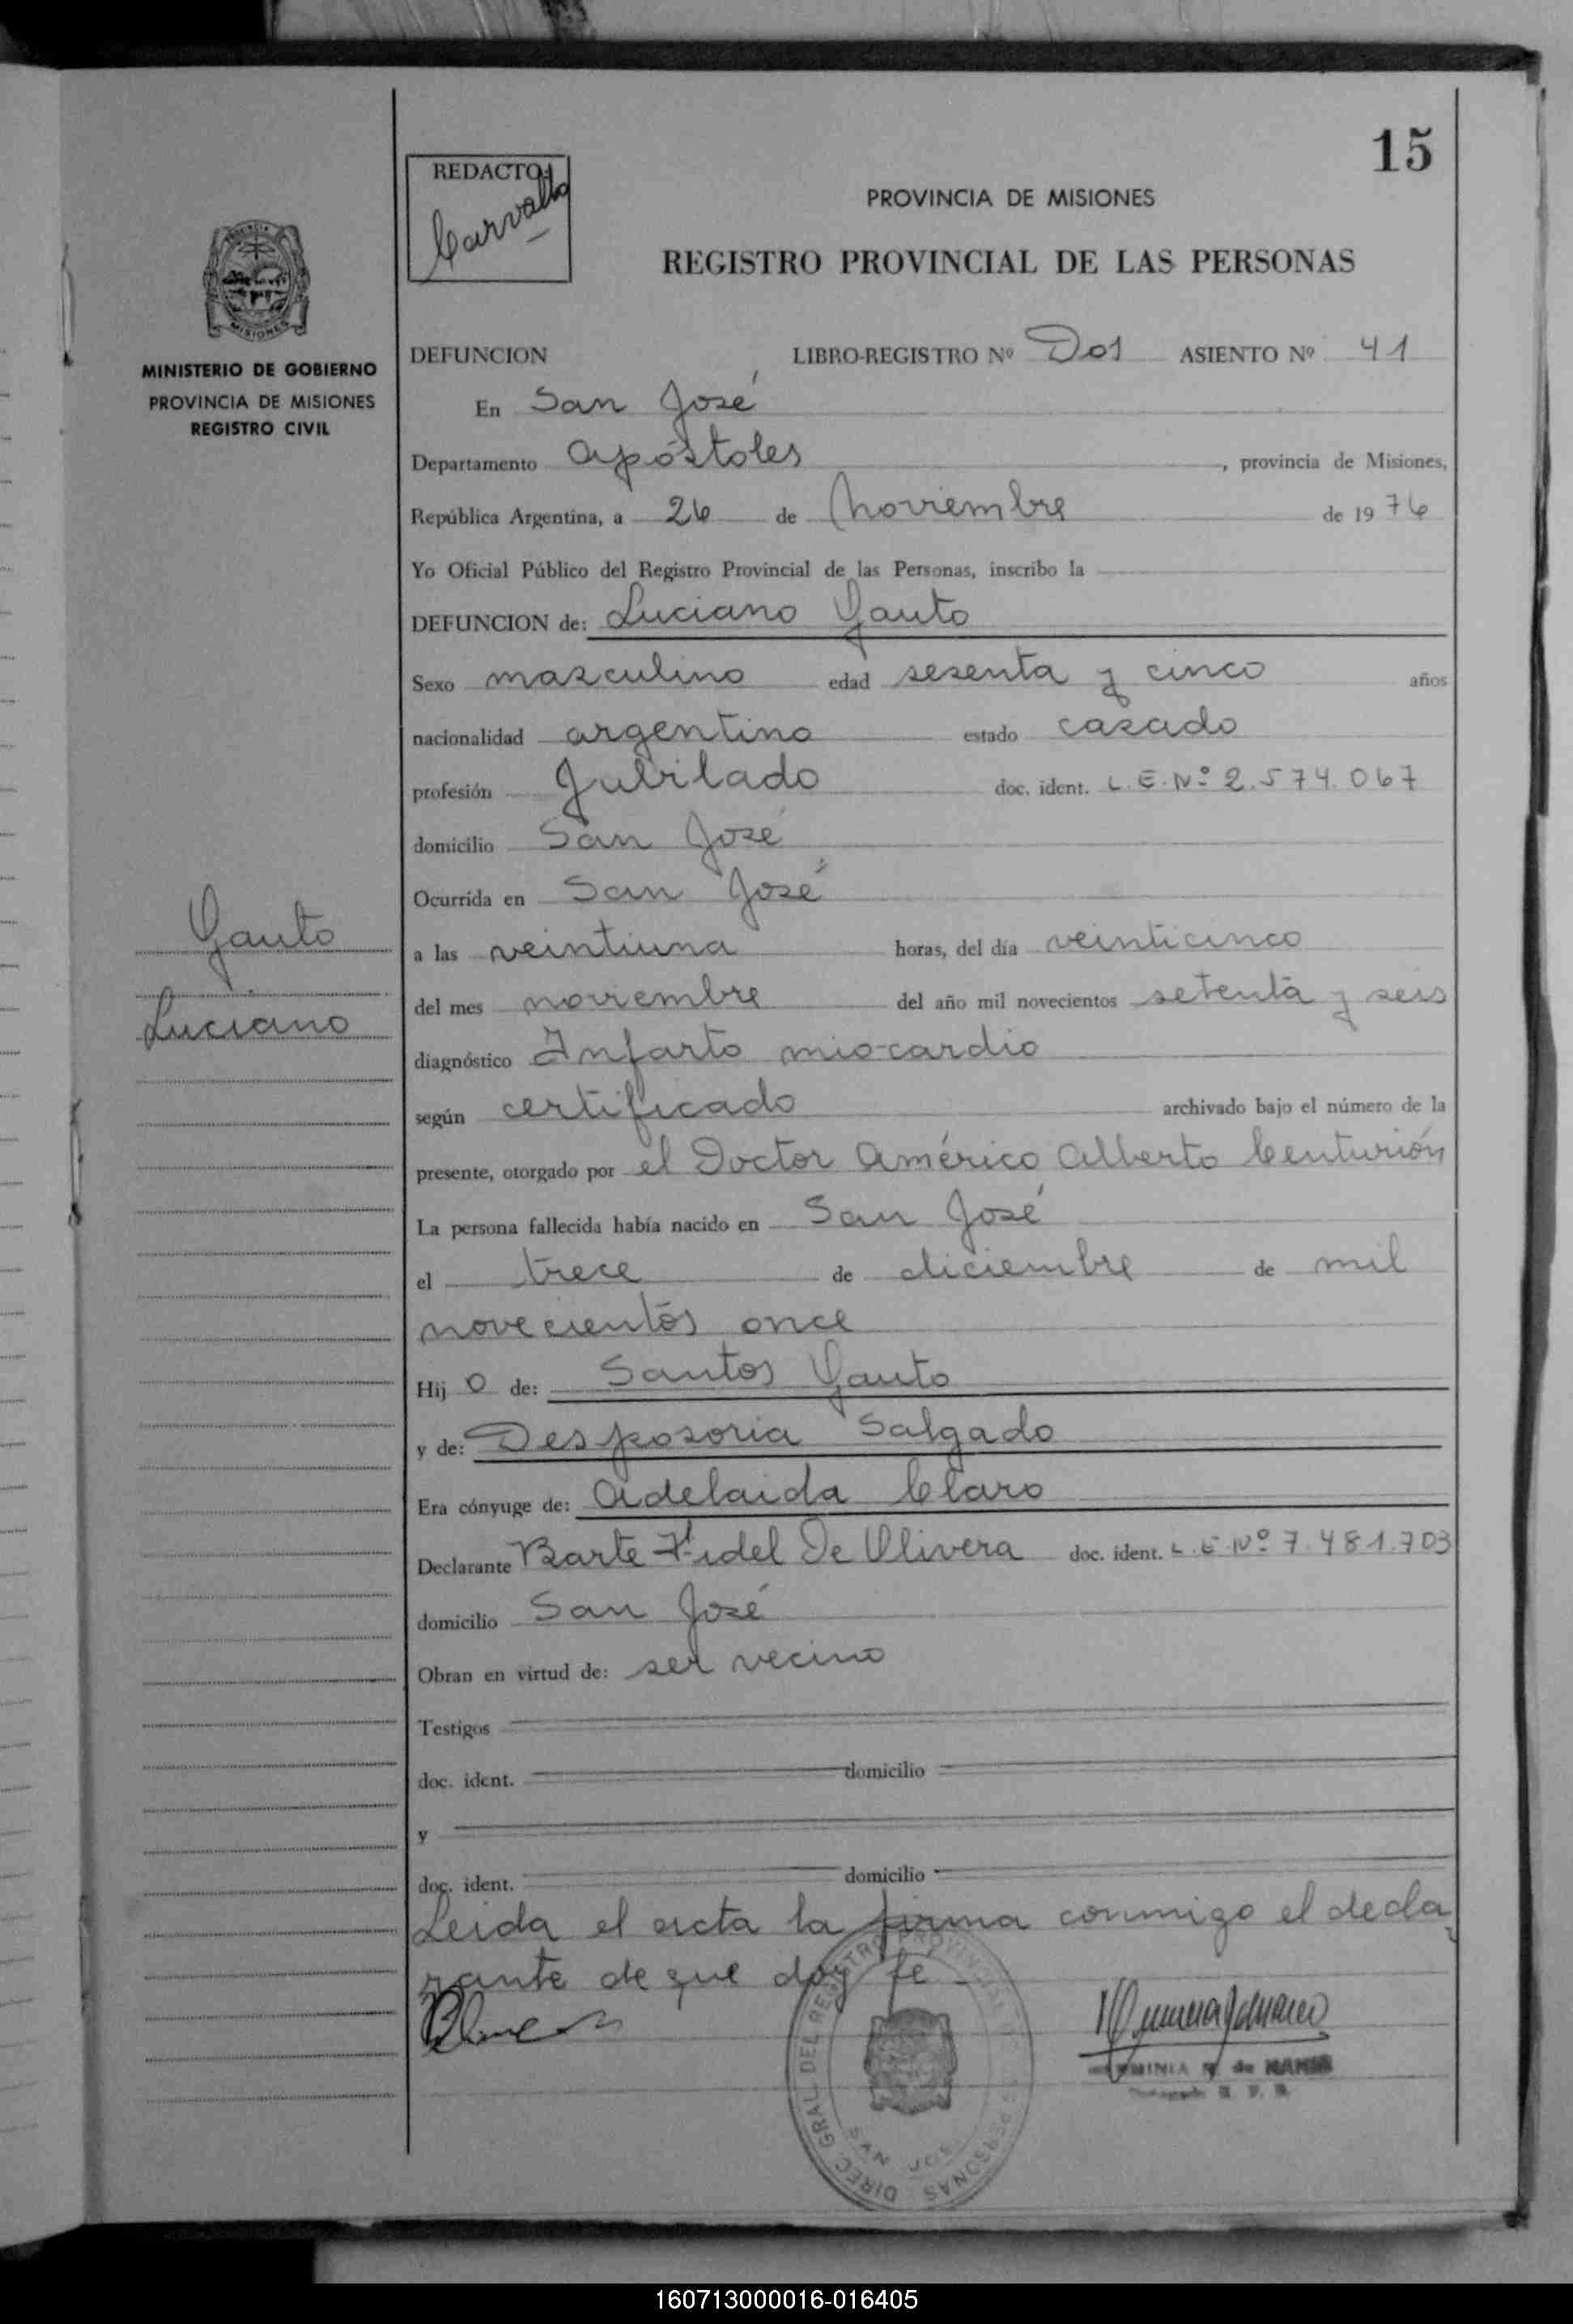 15
REDACTO:
Carvallo
PROVINCIA DE MISIONES
REGISTRO PROVINCIAL DE LAS PERSONAS
MISIONES
MINISTERIO DE GOBIERNO
PROVINCIA DE MISIONES
REGISTRO CIVIL
DEFUNCION LIBRO-REGISTRO Nº Dos ASIENTO Nº 41
En San José
Departamento Apóstoles, provincia de Misiones,
República Argentina, a 26 de Noviembre de 1976
Yo Oficial Público del Registro Provincial de las Personas, inscribo la
DEFUNCION de: Luciano Gauto
Sexo masculino edad sesenta y cinco años
nacionalidad argentino estado casado
profesión Jubilado doc. ident. L.E.Nº 2.574.067
domicilio San José
Ocurrida en San José
Gauto
Luciano
a las veintiuna horas, del día veinticinco
del mes noviembre del año mil novecientos setenta y seis
diagnóstico Infarto miocardio
según certificado archivado bajo el número de la
presente, otorgado por el Doctor Américo Alberto Centurión
La persona fallecida había nacido en San José
el trece de diciembre de mil
novecientos once
Hij o de: Santos Gauto
y de: Desposoria Salgado
Era cónyuge de: Adelaida Claro
Declarante Barte Fidel De Olivera doc. ident. L.E.Nº 7.481.703
domicilio San José
Obran en virtud de: ser vecino
Testigos
doc. ident. domicilio
y
doc. ident. domicilio
Leida el acta la firma conmigo el decla
rante de que doy fe
DIREC. GRAL. DEL REGISTRO PROVINCIAL PERSONAS
SAN JOSE
160713000016-016405